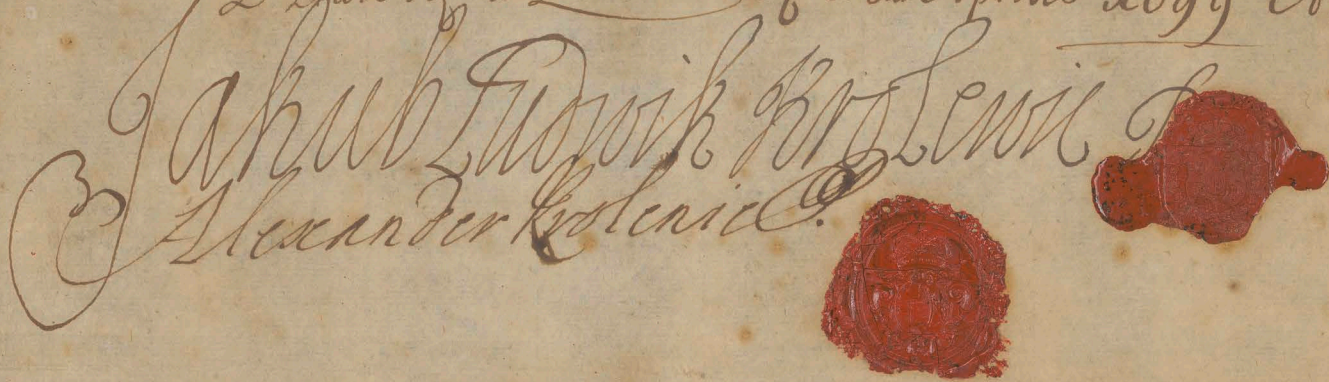 1699
Jakub Ludwik Krolewic P
Alexander Krolewic P.